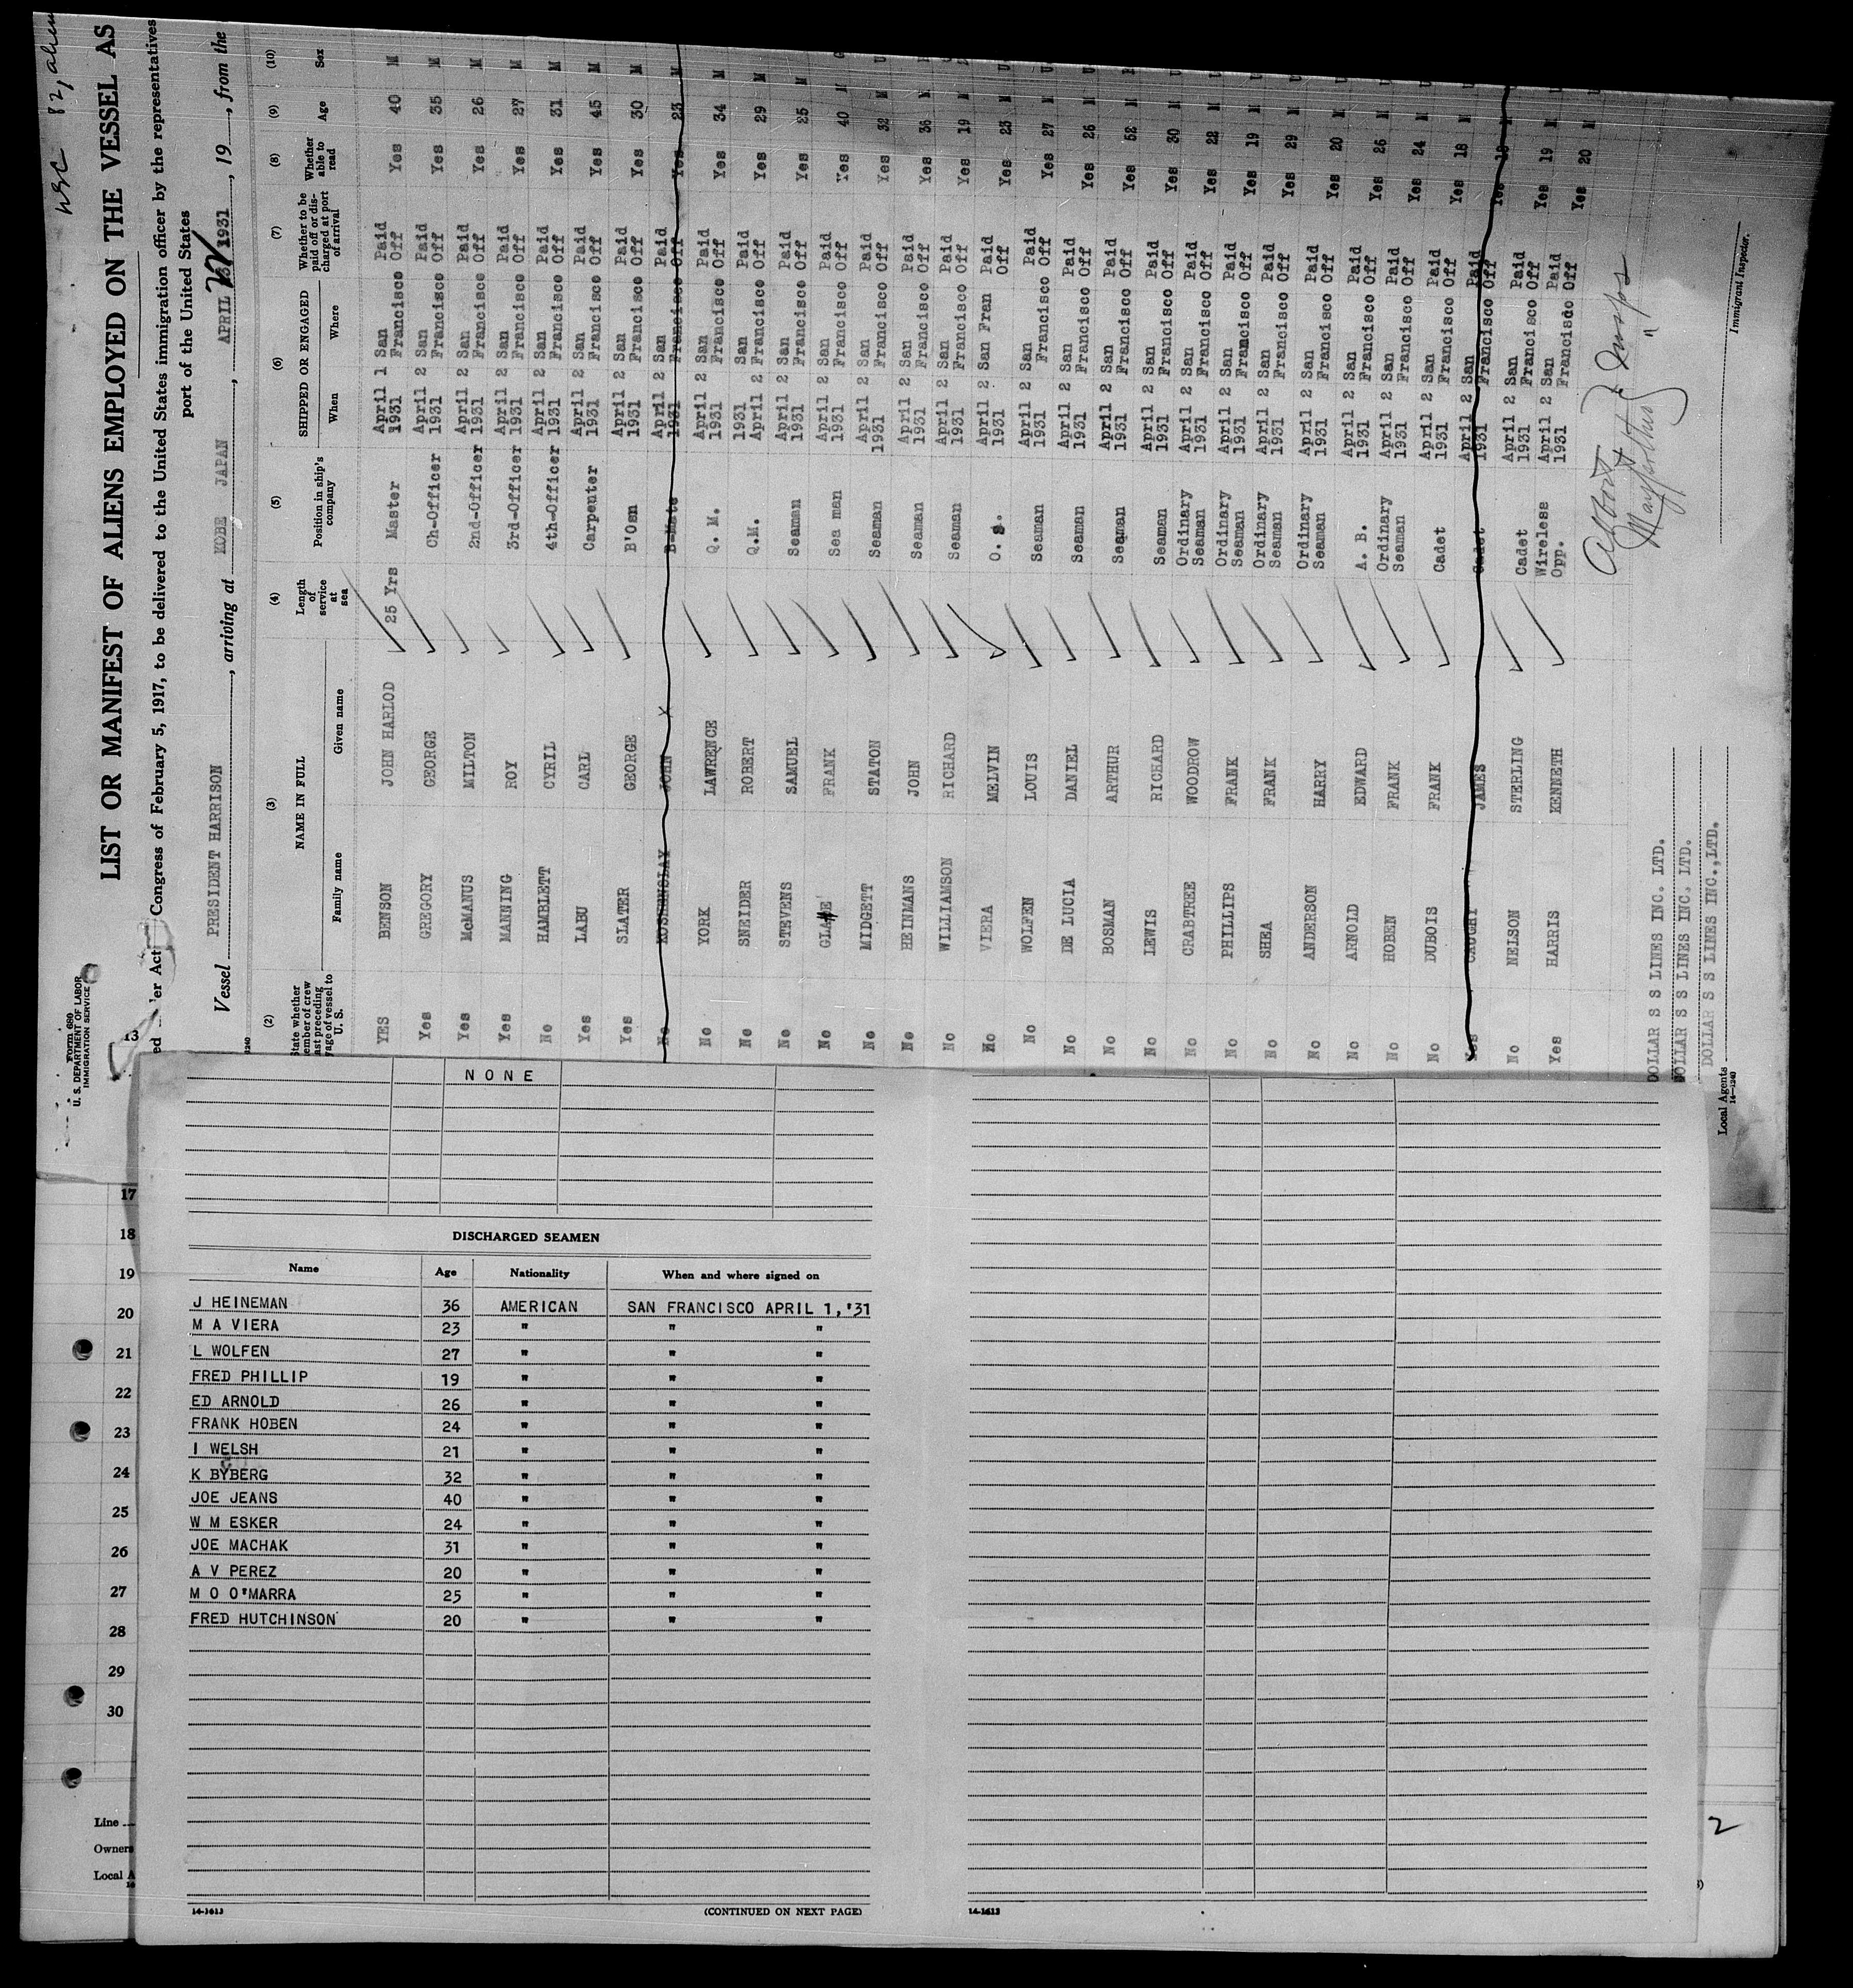 Form 680
U. S. DEPARTMENT OF LABOR
IMMIGRATION SERVICE
LIST OR MANIFEST OF ALIENS EMPLOYED ON THE VESSEL AS
er Act Congress of February 5, 1917, to be delivered to the United States immigration officer by the representatives
port of the United States
Vessel PRESIDENT HARRISON, arriving at KOBE JAPAN, APRIL 1931, 19, from the
(2) (3) (4) (5) (6) (7) (8) (9) (10)
State whether member of crew last preceding voyage of vessel to U. S. NAME IN FULL Family name Given name Length of service at sea Position in ship's company SHIPPED OR ENGAGED When Where Whether to be paid off or discharged at port of arrival Whether able to read Age Sex
YES BENSON JOHN HARLOD 25 Yrs Master April 1 1931 San Francisco Paid Off Yes 40 M
Yes GREGORY GEORGE Ch-Officer April 2 1931 San Francisco Paid Off Yes 35 M
Yes McMANUS MILTON 2nd-Officer April 2 1931 San Francisco Paid Off Yes 26 M
Yes MANNING ROY 3rd-Officer April 2 1931 San Francisco Paid Off Yes 27 M
No HAMBLETT CYRIL 4th-Officer April 2 1931 San Francisco Paid Off Yes 31 M
Yes LABU CARL Carpenter April 2 1931 San Francisco Paid Off Yes 45 M
Yes SLATER GEORGE B'Osn April 2 1931 San Francisco Paid Off Yes 30 M
No JOHN B-Mate April 2 1931 San Francisco Paid Off Yes 23 M
No YORK LAWRENCE Q. M. April 2 1931 San Francisco Paid Off Yes 34 M
No SNEIDER ROBERT Q.M. 1931 April 2 San Francisco Paid Off Yes 29 M
No STEVENS SAMUEL Seaman April 2 1931 San Francisco Paid Off Yes 25 M
No FRANK Sea man April 2 1931 San Francisco Paid Off Yes 40 M
No MIDGETT STATON Seaman April 2 1931 San Francisco Paid Off Yes 32 M
No HEINMANS JOHN Seaman April 2 1931 San Francisco Paid Off Yes 36 M
No WILLIAMSON RICHARD Seaman April 2 1931 San Francisco Paid Off Yes 19 M
No VIERA MELVIN O. S. April 2 1931 San Fran Paid Off Yes 23 M
No WOLFEN LOUIS Seaman April 2 1931 San Francisco Paid Off Yes 27 M
No DE LUCIA DANIEL Seaman April 2 1931 San Francisco Paid Off Yes 26 M
No BOSMAN ARTHUR Seaman April 2 1931 San Francisco Paid Off Yes 52 M
No LEWIS RICHARD Seaman April 2 1931 San Francisco Paid Off Yes 30 M
No CRABTREE WOODROW Ordinary Seaman April 2 1931 San Francisco Paid Off Yes 22 M
No PHILLIPS FRANK Ordinary Seaman April 2 1931 San Francisco Paid Off Yes 19 M
No SHEA FRANK Ordinary Seaman April 2 1931 San Francisco Paid Off Yes 29 M
No ANDERSON HARRY Ordinary Seaman April 2 1931 San Francisco Paid Off Yes 20 M
No ARNOLD EDWARD A. B. April 2 1931 San Francisco Paid Off Yes 26 M
No HOBEN FRANK Ordinary Seaman April 2 1931 San Francisco Paid Off Yes 24 M
No DUBOIS FRANK Cadet April 2 1931 San Francisco Paid Off Yes 18 M
Yes CAUGHY JAMES Cadet April 2 1931 San Francisco Paid Off Yes M
No NELSON STERLING Cadet April 2 1931 San Francisco Paid Off Yes 19 M
Yes HARRIS KENNETH Wireless Opp. April 2 1931 San Francisco Paid Off Yes 20 M
Immigrant Inspector.
DOLLAR S S LINES INC. LTD.
DOLLAR S S LINES INC. LTD.
DOLLAR S S LINES INC.,LTD.
Local Agents
14-1240
13
17
18
19
20
21
22
23
24
25
26
27
28
29
30
Line
Owners
Local A
NONE
DISCHARGED SEAMEN
Name Age Nationality When and where signed on
J HEINEMAN 36 AMERICAN SAN FRANCISCO APRIL 1,'31
M A VIERA 23 " " "
L WOLFEN 27 " " "
FRED PHILLIP 19 " " "
ED ARNOLD 26 " " "
FRANK HOBEN 24 " " "
I WELSH 21 " " "
K BYBERG 32 " " "
JOE JEANS 40 " " "
W M ESKER 24 " " "
JOE MACHAK 31 " " "
A V PEREZ 20 " " "
M O O'MARRA 25 " " "
FRED HUTCHINSON 20 " " "
14-1613 (CONTINUED ON NEXT PAGE)
14-1613
2